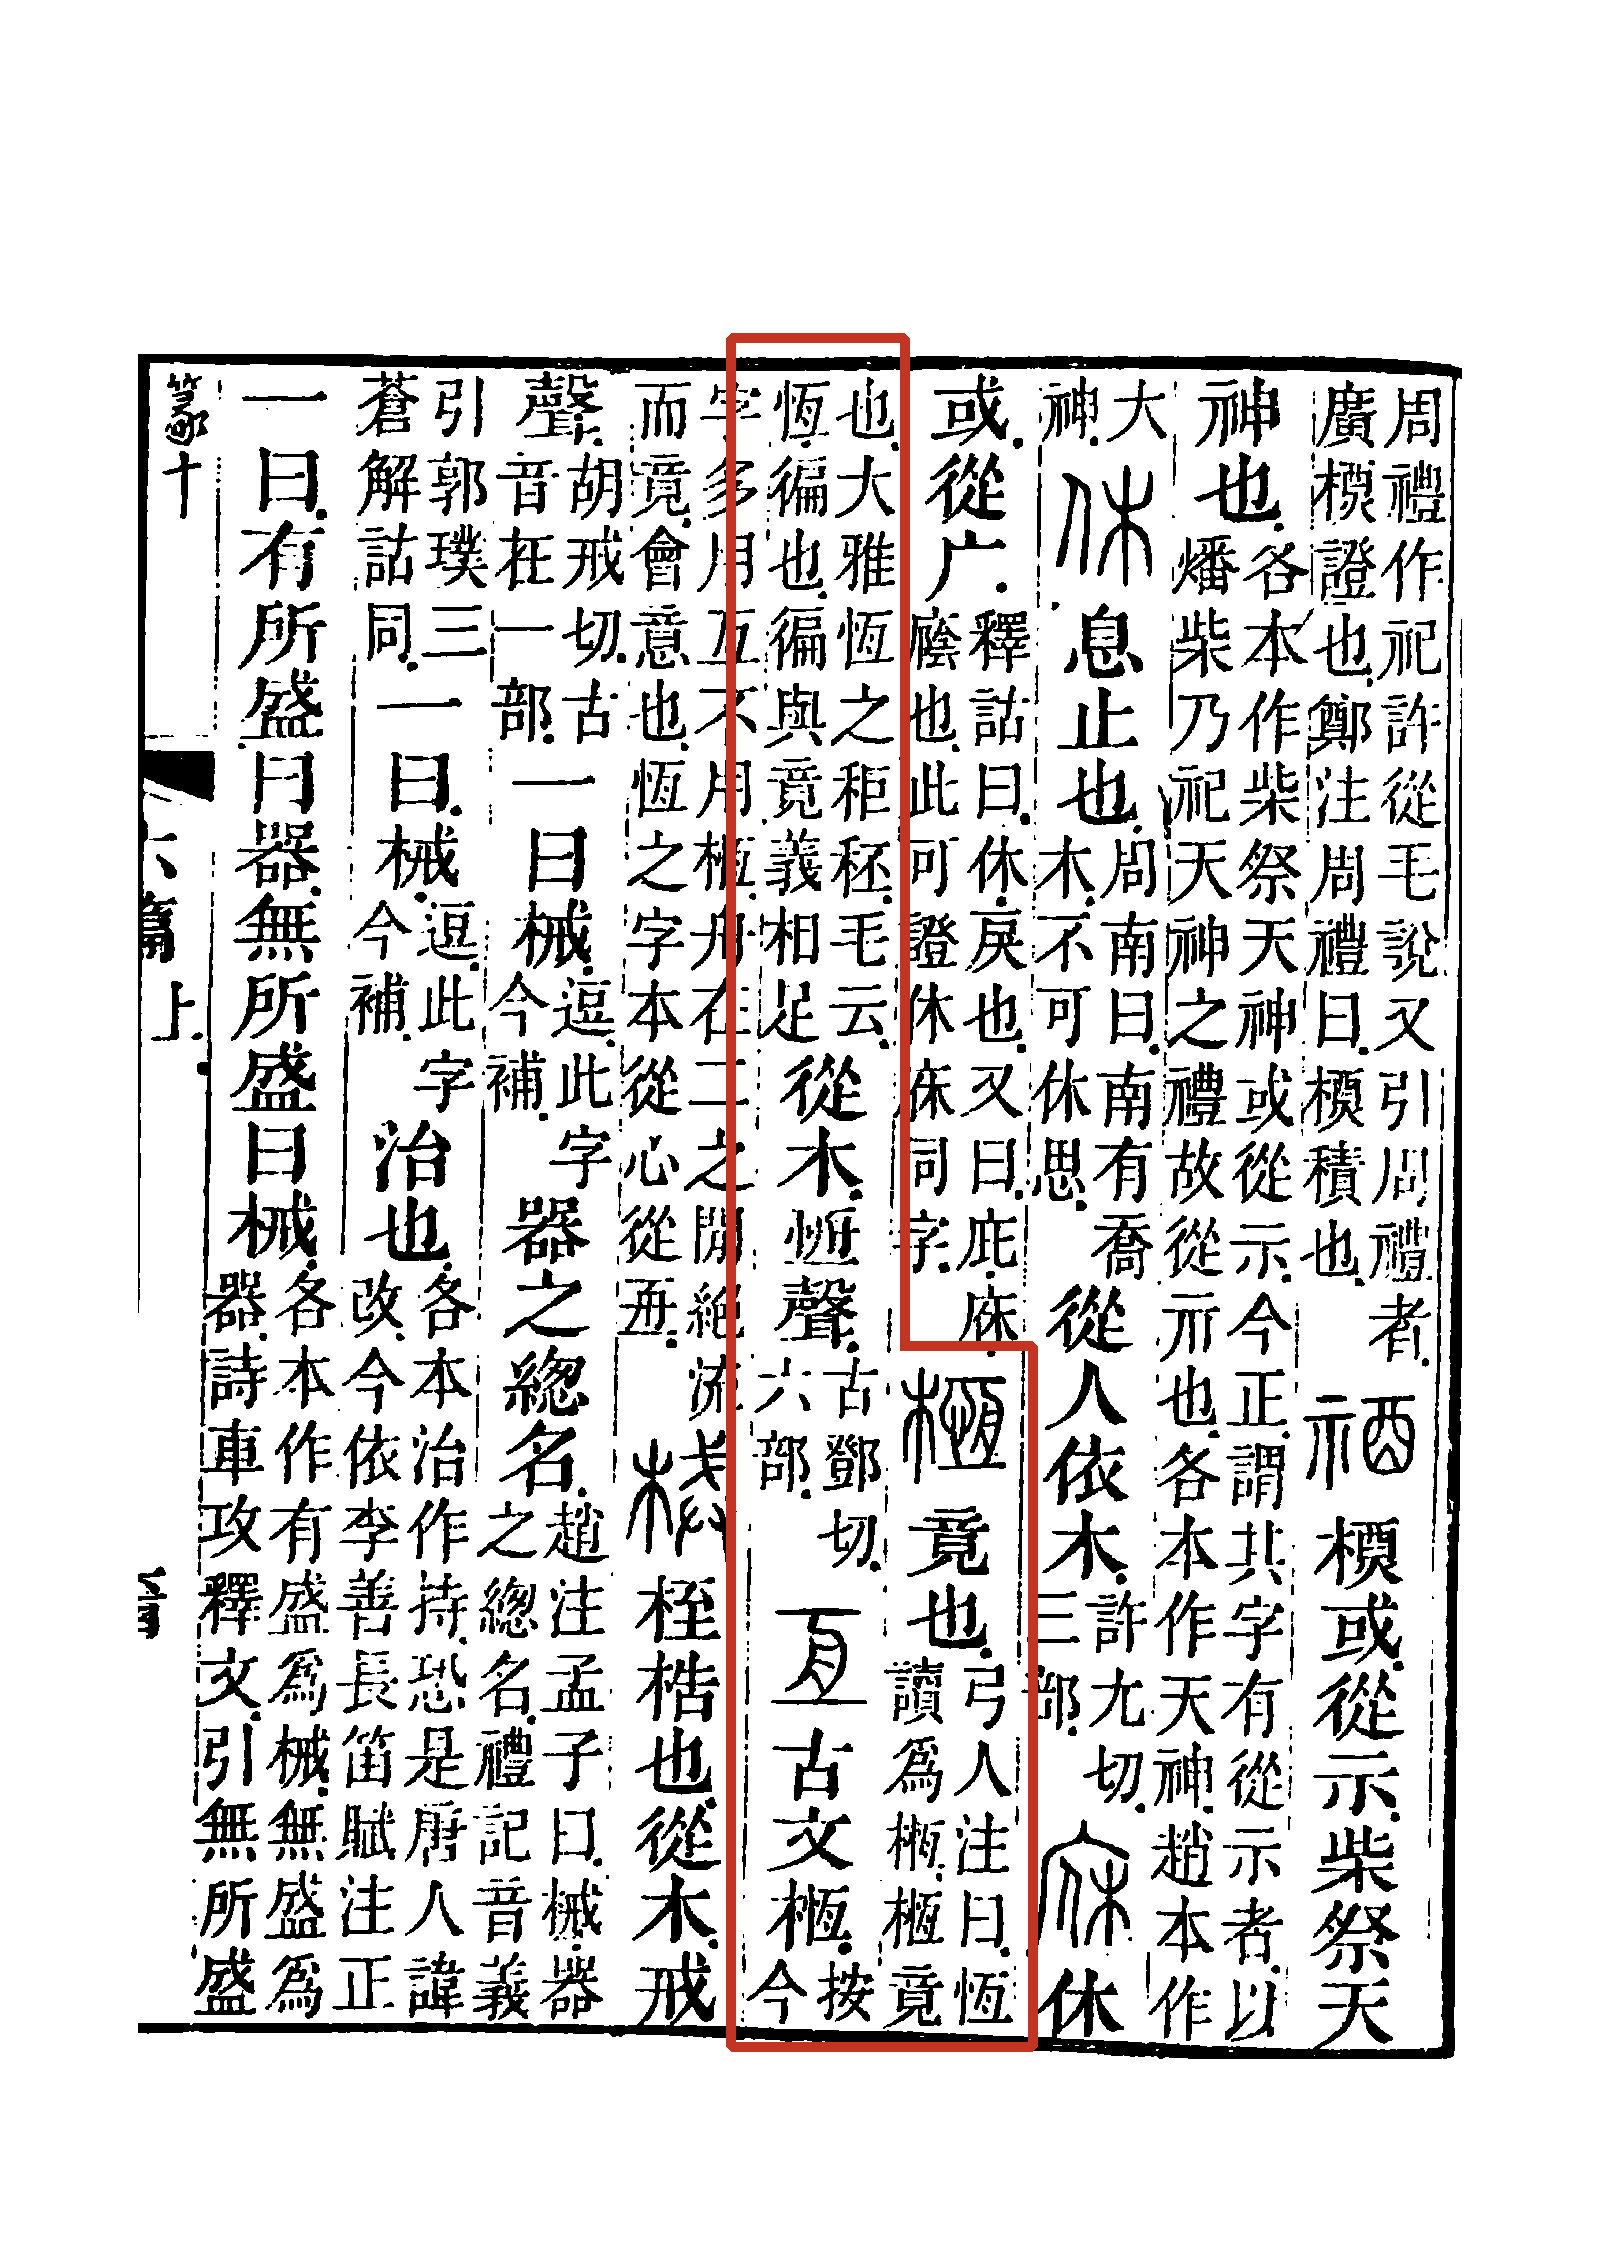 周禮作祀許從毛說又引周禮者廣槱證也鄭注周禮曰槱積也 酒 槱或從示柴祭天
神也各本作柴祭天神或從示今正謂共字有從示者以燔柴乃祀天神之禮故從示也各本作天神趙本作
大神 休 息止也周南曰南有喬木不可休思從人依木許尤切三部 庥 休
或從广釋詁曰休戾也又曰庇庥廕也此可證休庥同字 㮓 竟也弓人注曰恆讀爲㮓㮓竟
也大雅恆之秬秠毛云恆徧也徧與竟義相足從木恆聲古鄧切六部 亙 古文㮓按今
字多用亙不用㮓舟在二之閒絕流而竟會意也恆之字本從心從亙 械 桎梏也從木戒
聲胡戒切古音在一部一曰械逗此字今補器之總名趙注孟子曰械器之總名禮記音義
引郭璞三蒼解詁同一曰械逗此字今補治也各本治作持恐是唐人諱改今依李善長笛賦注正
一曰有所盛曰器無所盛曰械各本作有盛爲械無盛爲器詩車攻釋文引無所盛
篆十
六篇上